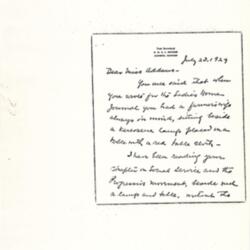 July 23, 1929
Dear Miss Addams -
You once said that when
you wrote for the Ladies Home
Journal you had a farmer's wife
always in mind, sitting beside
a kerosene lamp placed on a
table with a red table cloth -
I have been reading your
chapters on Social Service and the
Progressive Movement, beside such
a lamp and table, without the